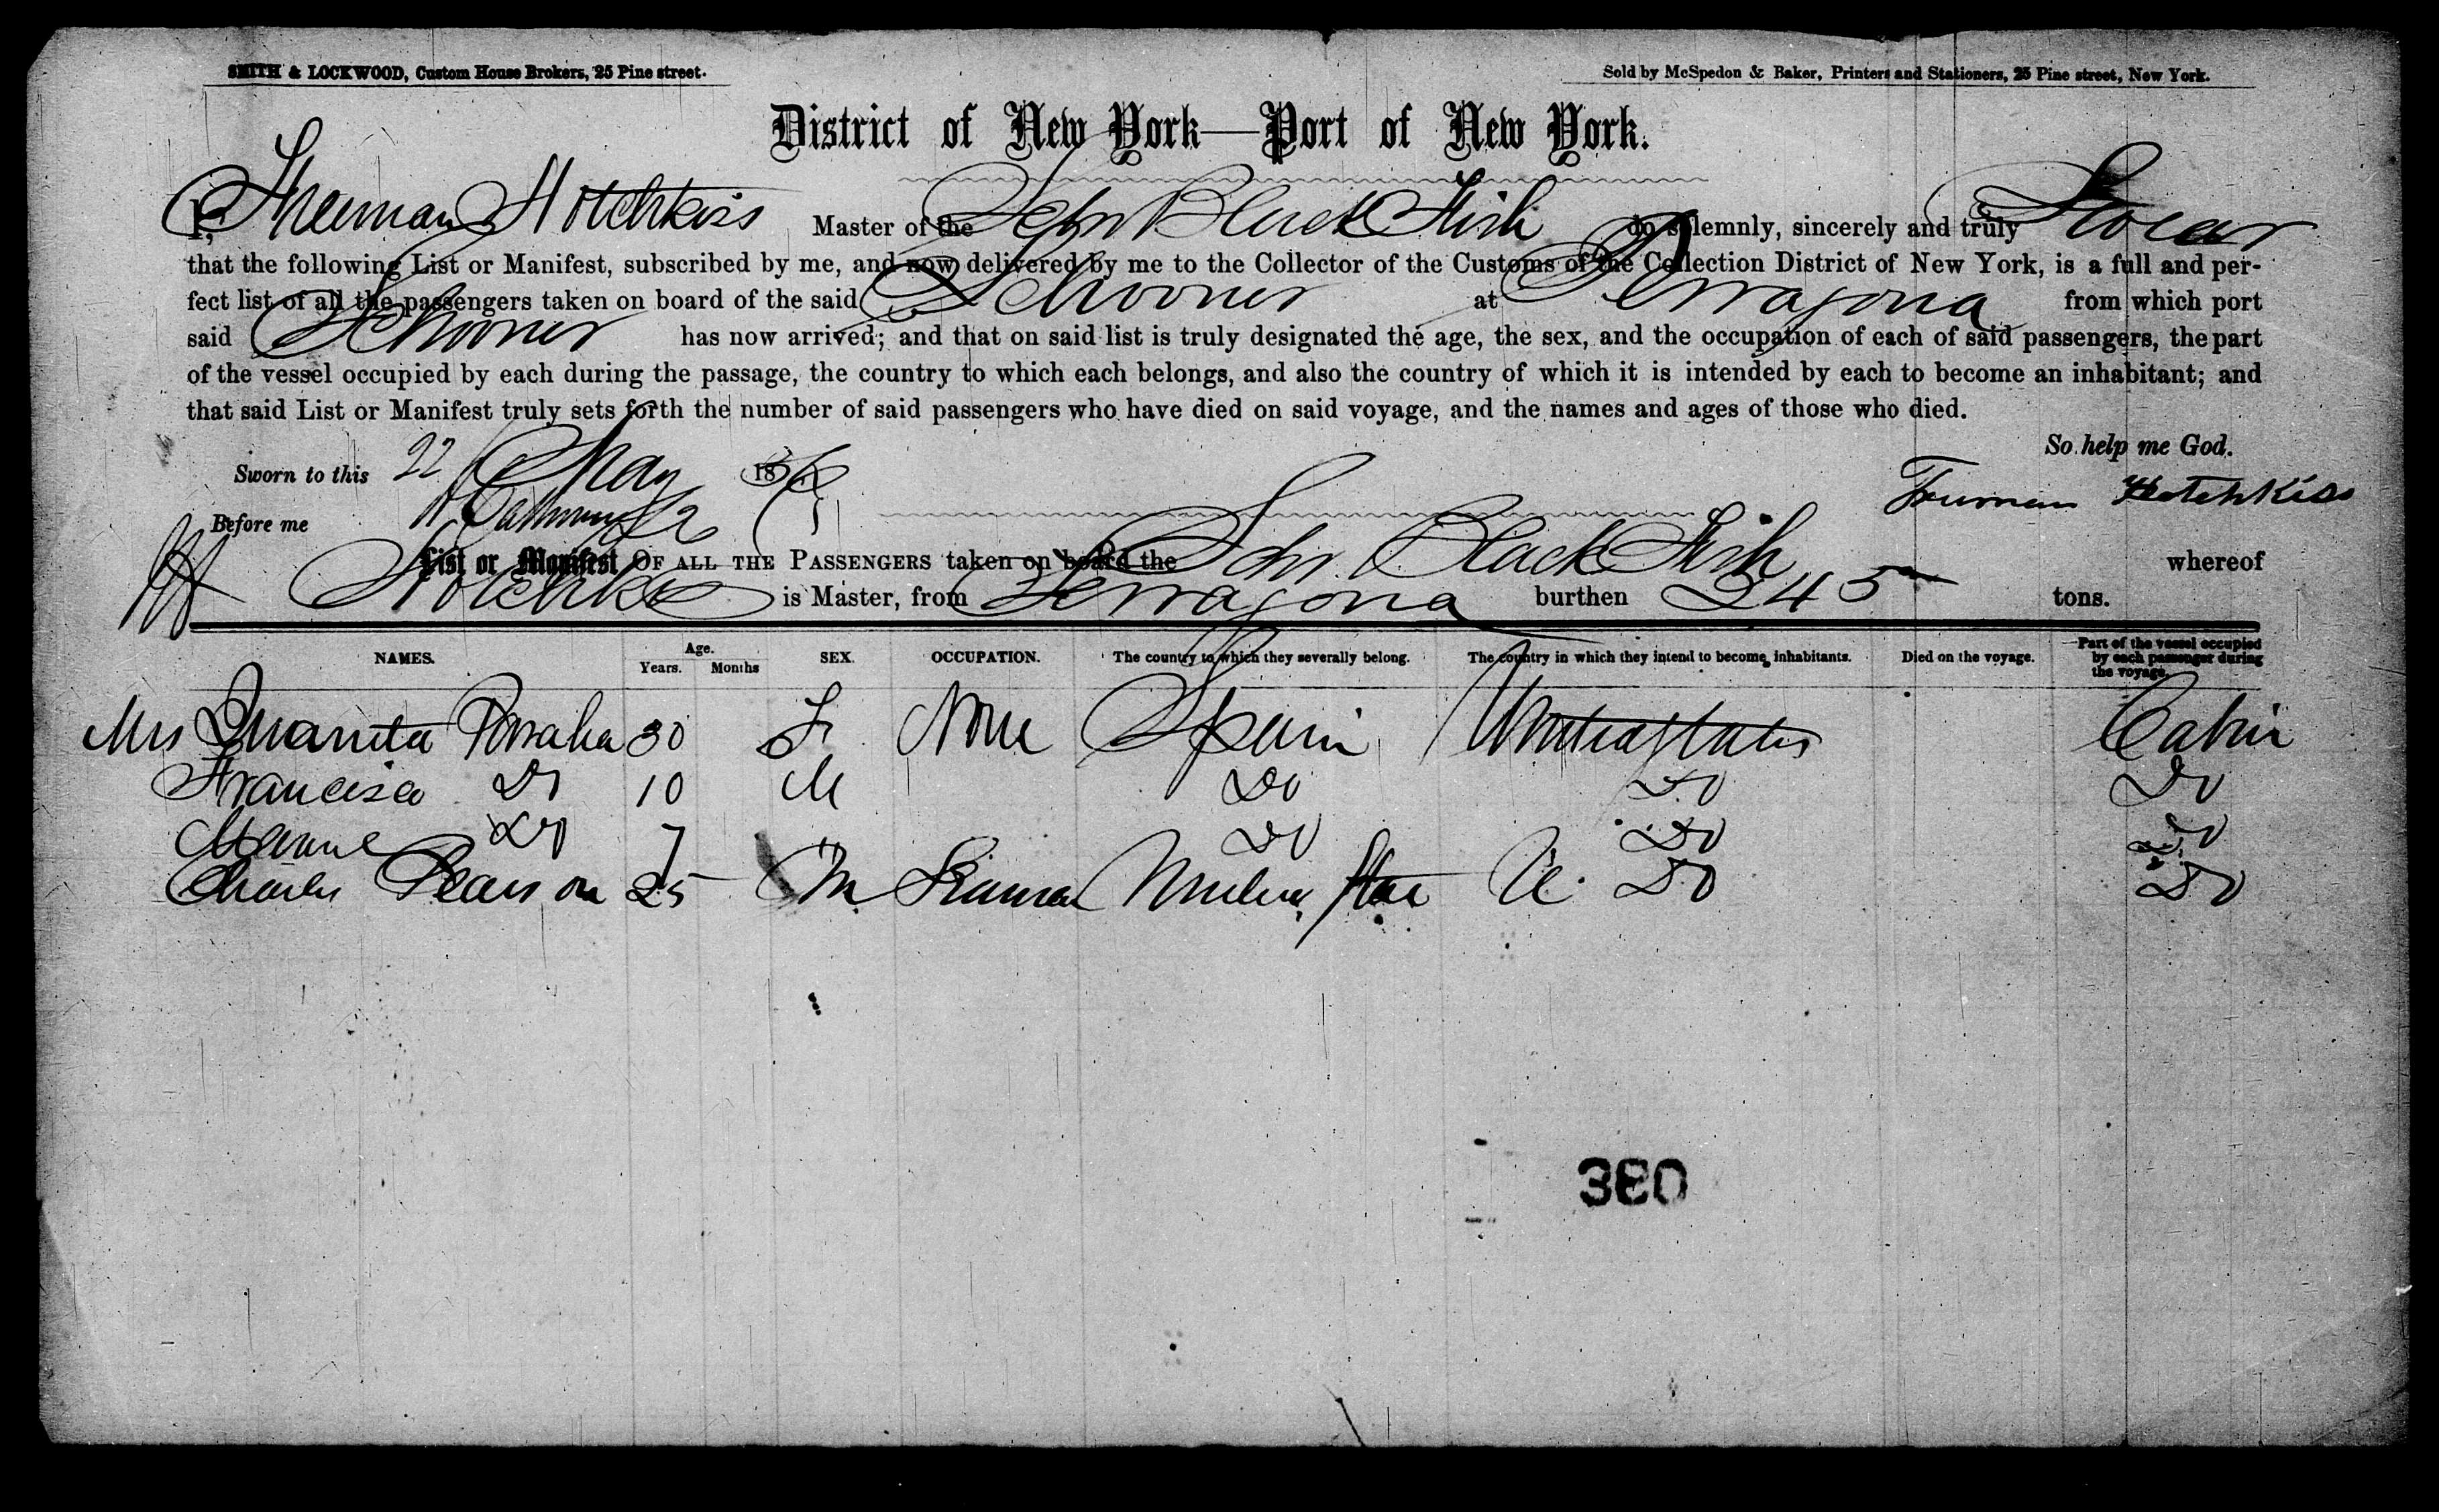 SMITH & LOCKWOOD, Custom House Brokers, 25 Pine street.
Sold by McSpedon & Baker, Printers and Stationers, 25 Pine street, New York.
District of New York—Port of New York.
I, Hotchkiss Master of the Schr Black Fish do solemnly, sincerely and truly Swear
that the following List or Manifest, subscribed by me, and now delivered by me to the Collector of the Customs of the Collection District of New York, is a full and per-
fect list of all the passengers taken on board of the said Schooner at Terragona from which port
said Schooner has now arrived; and that on said list is truly designated the age, the sex, and the occupation of each of said passengers, the part
of the vessel occupied by each during the passage, the country to which each belongs, and also the country of which it is intended by each to become an inhabitant; and
that said List or Manifest truly sets forth the number of said passengers who have died on said voyage, and the names and ages of those who died.
So help me God.
Sworn to this 22 May 18
Truman Hotchkiss
Before me
List or Manifest OF ALL THE PASSENGERS taken on board the Schr Black Fish whereof
Hotchkiss is Master, from Terragona burthen 245 tons.
NAMES. Age. Years. Months SEX. OCCUPATION. The country to which they severally belong. The country in which they intend to become inhabitants. Died on the voyage. Part of the vessel occupied by each passenger during the voyage.
Mrs Juanita 30 F None Spain United States Cabin
Francisco Do 10 M Do Do Do
Do 7 Do Do Do
Charles Pearson 25 M Seaman Do Do
380